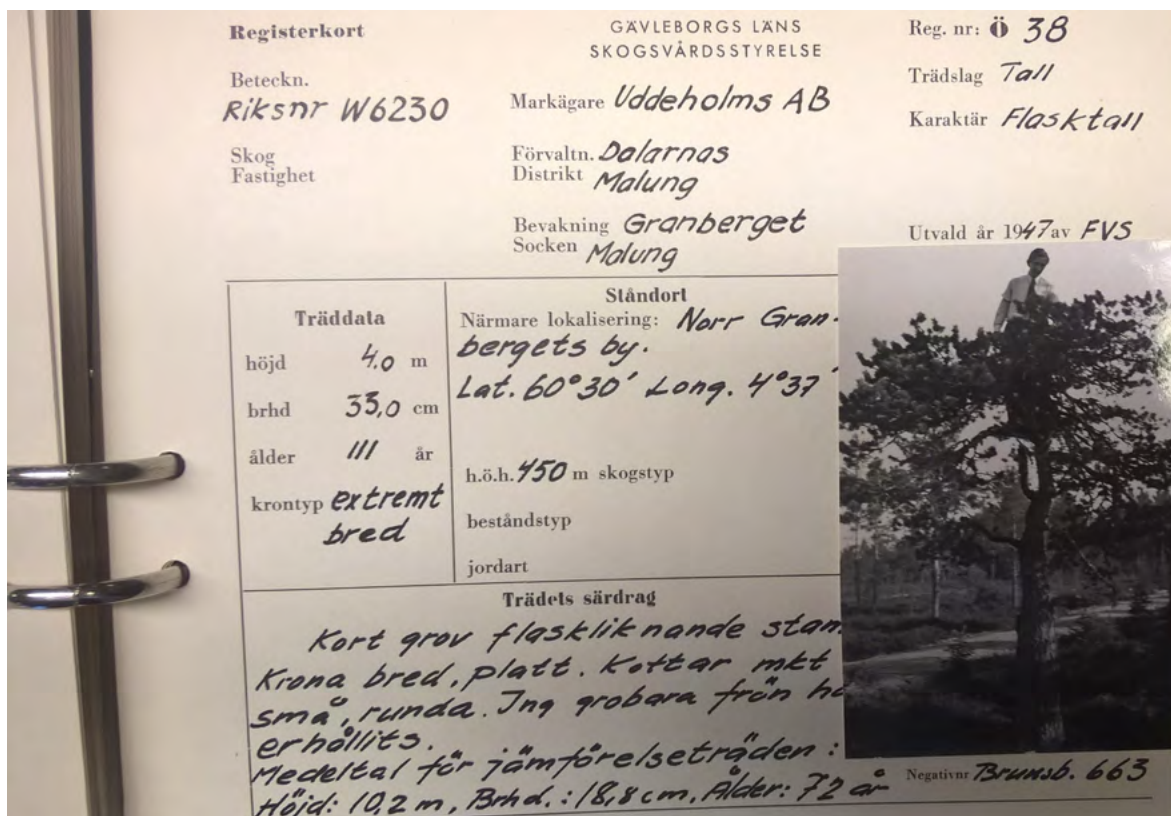 Registerkort
GÄVLEBORGS LÄNS
SKOGSVÅRDSSTYRELSE
Reg. nr: Ö 38
Beteckn.
Riksnr W6230
Markägare Uddeholms AB
Trädslag Tall
Karaktär Flasktall
Skog
Fastighet
Förvaltn. Dalarnas
Distrikt Malung
Bevakning Granberget
Socken Malung
Utvald år 1947 av FVS
Träddata
höjd 4,0 m
brhd 33,0 cm
ålder 111 år
krontyp extremt
bred
Ståndort
Närmare lokalisering: Norr Gran-
bergets by.
Lat. 60°30′ Long. 4°37′
h.ö.h. 450 m skogstyp
beståndstyp
jordart
Trädets särdrag
Kort grov flaskliknande
Krona bred, platt. Kottar mkt
små, runda. Ing grobara frön
erhållits.
Medeltal för jämförelseträden:
Höjd: 10,2 m, Brhd.: 18,8 cm, Ålder: 72 år
Negativnr Brunsb. 663